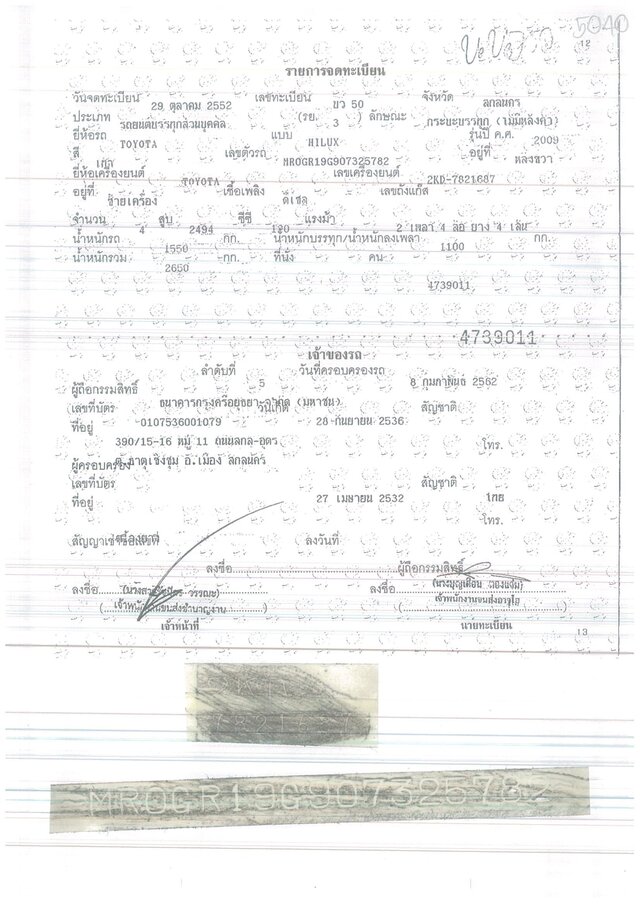 5040
18
รายการจดทะเบียน
วันจดทะเบียน 29 ตุลาคม 2552 เลขทะเบียน บว 50 จังหวัด สกลนคร
ประเภท รถยนต์บรรทุกส่วนบุคคล (รย. 3 ) ลักษณะ กระบะบรรทุก (ไม่มีหลังคา)
ยี่ห้อรถ TOYOTA แบบ HILUX รุ่นปี ค.ศ. 2009
สี เทา เลขตัวรถ MR0GR19G907325782 อยู่ที่ หลังขวา
ยี่ห้อเครื่องยนต์ TOYOTA เลขเครื่องยนต์ 2KD-7821687
อยู่ที่ ซ้ายเครื่อง เชื้อเพลิง ดีเซล เลขถังแก๊ส
จำนวน 4 สูบ 2494 ซีซี 120 แรงม้า 2 เพลา 4 ล้อ ยาง 4 เส้น
น้ำหนักรถ 1550 กก. น้ำหนักบรรทุก/น้ำหนักลงเพลา 1100 กก.
น้ำหนักรวม 2650 กก. ที่นั่ง คน
4739011
4739011
เจ้าของรถ
ลำดับที่ 5 วันที่ครอบครองรถ 8 กุมภาพันธ์ 2562
ผู้ถือกรรมสิทธิ์ ธนาคารกรุงศรีอยุธยา จำกัด (มหาชน)
เลขที่บัตร 0107536001079 วันเกิด 28 กันยายน 2536 สัญชาติ
ที่อยู่ 390/15-16 หมู่ 11 ถนนสกล-อุดร โทร.
ต.ธาตุเชิงชุม อ.เมือง สกลนคร
ผู้ครอบครอง
เลขที่บัตร 27 เมษายน 2532 สัญชาติ ไทย
ที่อยู่ โทร.
สัญญาเช่าซื้อเลขที่ ลงวันที่
ลงชื่อ ผู้ถือกรรมสิทธิ์
ลงชื่อ ลงชื่อ
เจ้าพนักงานขนส่งชำนาญงาน เจ้าพนักงานขนส่งอาวุโส
เจ้าหน้าที่ นายทะเบียน
13
MR0GR19G907325782